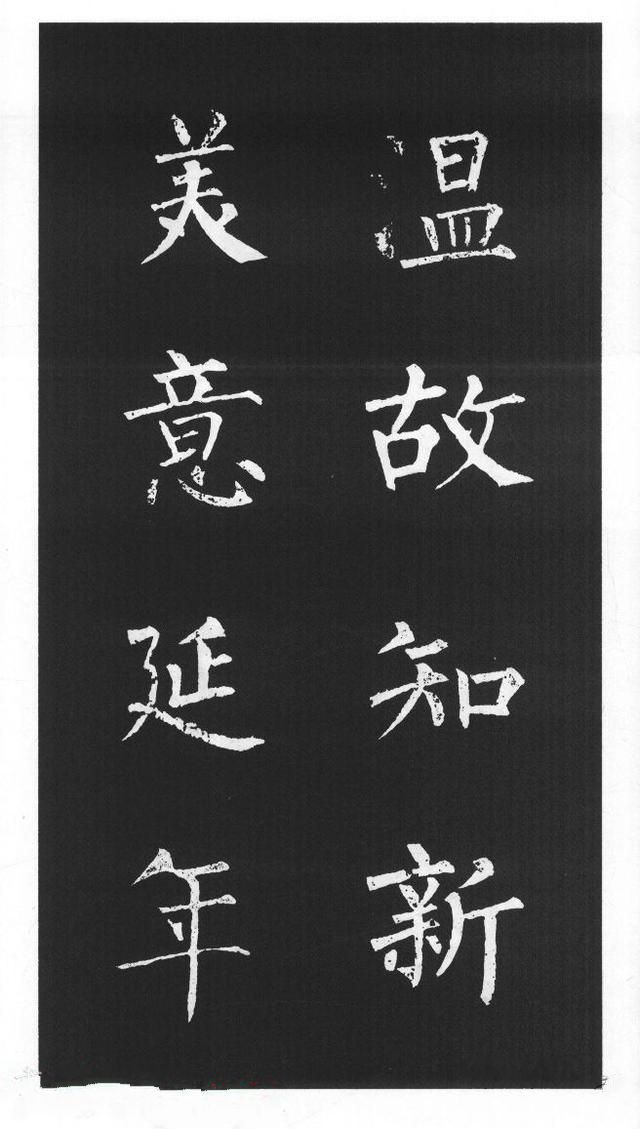 温故知新
美意延年